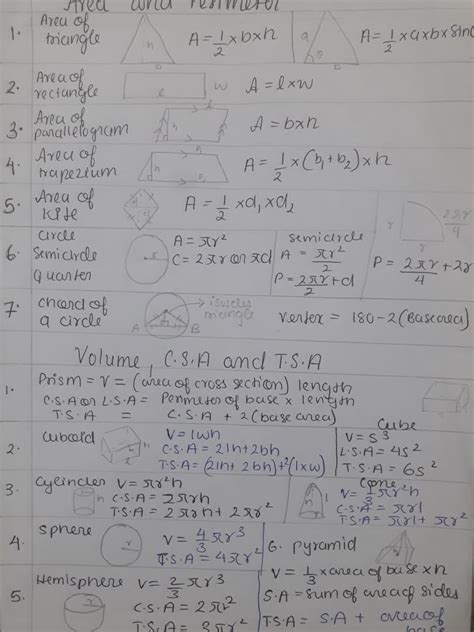 Area and Perimeter
1. Area of triangle h b A = 1/2 × b × h a b A = 1/2 × a × b × sinθ
2. Area of rectangle l w A = l × w
3. Area of parallelogram h b A = b × h
4. Area of trapezium h b₁ b₂ A = 1/2 × (b₁ + b₂) × h
5. Area of kite A = 1/2 × d₁ × d₂
6. circle semicircle quarter r A = πr² C = 2πr or πd
semicircle A = πr²/2 P = 2πr/2 + d
r r 2πr/4 P = 2πr/4 + 2r
7. chord of a circle A B → isosceles triangle vertex = 180 - 2(Base area)
Volume, C.S.A and T.S.A
1. Prism = V = (area of cross section) length
C.S.A or L.S.A = Perimeter of base × length
T.S.A = C.S.A + 2(base area)
2. cuboid h V = lwh
C.S.A = 2lh + 2bh
T.S.A = (2lh + 2bh) + 2(l×w)
Cube
V = s³
L.S.A = 4s²
T.S.A = 6s²
3. Cylinder V = πr²h
h C.S.A = 2πrh
T.S.A = 2πrh + 2πr²
Cone
h l V = 1/3 πr²h
C.S.A = πrl
T.S.A = πrl + πr²
4. Sphere r V = 4/3 πr³
T.S.A = 4πr²
5. Hemisphere V = 2/3 πr³
r C.S.A = 2πr²
T.S.A = 3πr²
6. pyramid
V = 1/3 × area of base × h
S.A = sum of area of sides
T.S.A = S.A + area of base